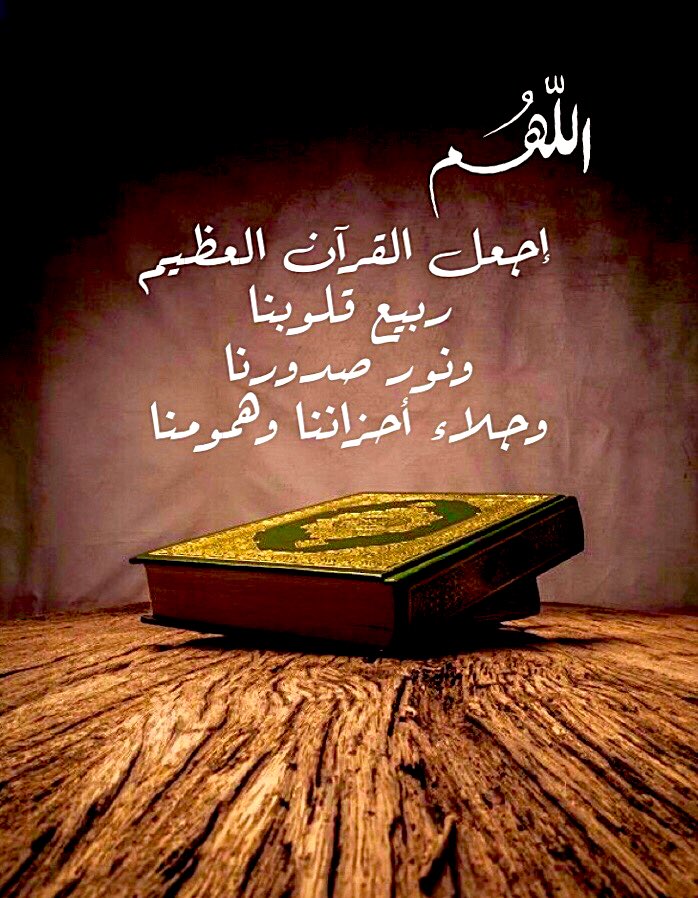 اللّهُم
إجعل القرآن العظيم
ربيع قلوبنا
ونور صدورنا
وجلاء أحزاننا وهمومنا